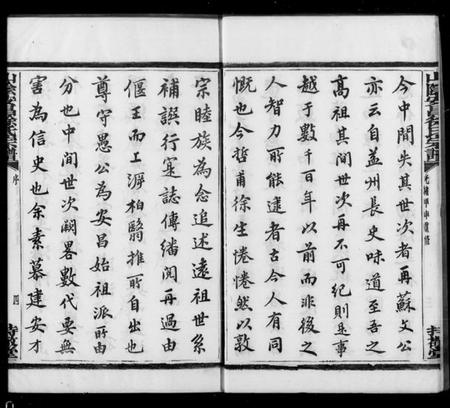 今中間失其世次者再蘇文公
亦云自益州長史味道至吾之
高祖其間世次再不可紀則是事
越于數千百年以前而非後之
人智力所能逮者古今人有同
慨也今哲甫徐生惓惓然以敦
宗睦族為念追述遠祖世系
補誤行寔誌傳繙閱再過由
偃王而上溯柏翳推所自出也
尊守愚公為安昌始祖派所由
分也中間世次闕畧數代要無
害為信史也余素慕建安才
序
四